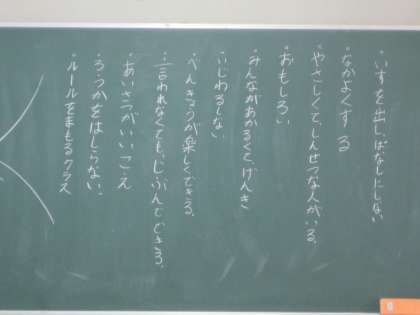 ・いすを出しっぱなしにしない
・なかよくする
・やさしくてしんせつな人がいる。
・おもしろい
・みんながあかるくて、げんき
・いじわるしない
・べんきょうが楽しくできる。
・言われなくても、じぶんでできる。
・あいさつがいいこえ
・ろうかをはしらない。
・ルールをまもるクラス